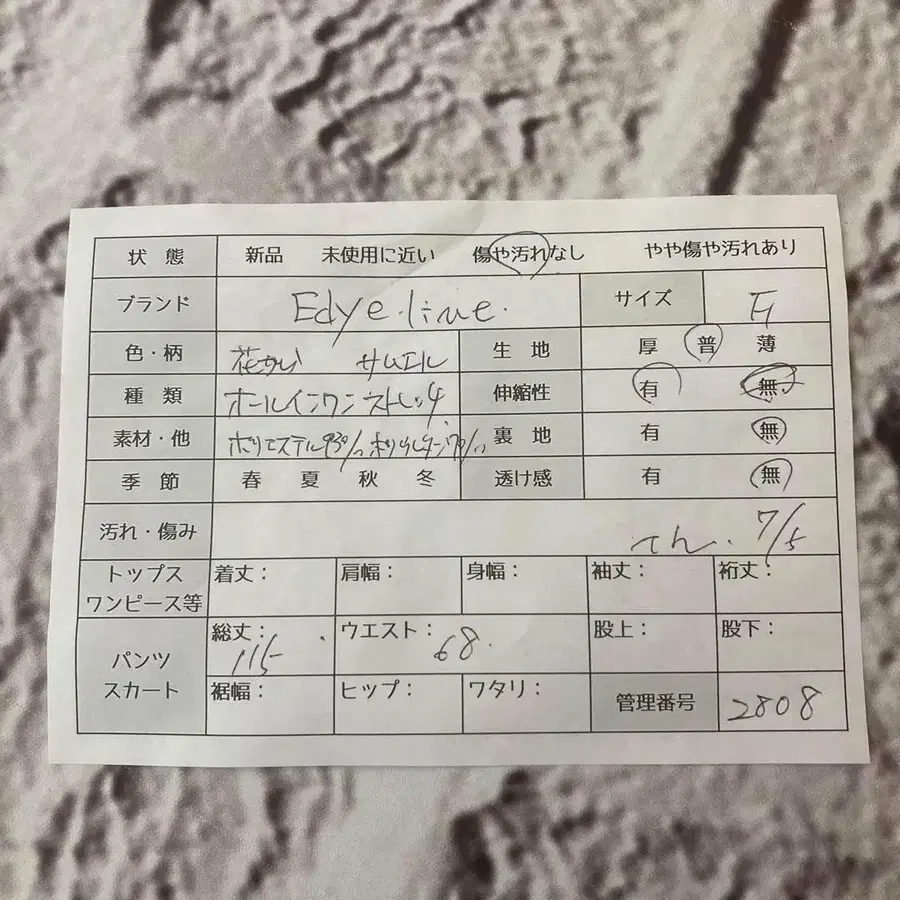 状態 新品 未使用に近い 傷や汚れなし やや傷や汚れあり
ブランド Edye.line. サイズ
色・柄 花がら 生地 厚 普 薄
種類 オールインワン ストレッチ 伸縮性 有 無
素材・他 ポリエステル93% ポリウレタン7% 裏地 有 無
季節 春 夏 秋 冬 透け感 有 無
汚れ・傷み てん. 7/5
トップス ワンピース等 着丈: 肩幅: 身幅: 袖丈: 裄丈:
パンツ スカート 総丈: 115 ウエスト: 68. 股上: 股下:
裾幅: ヒップ: ワタリ: 管理番号 2808